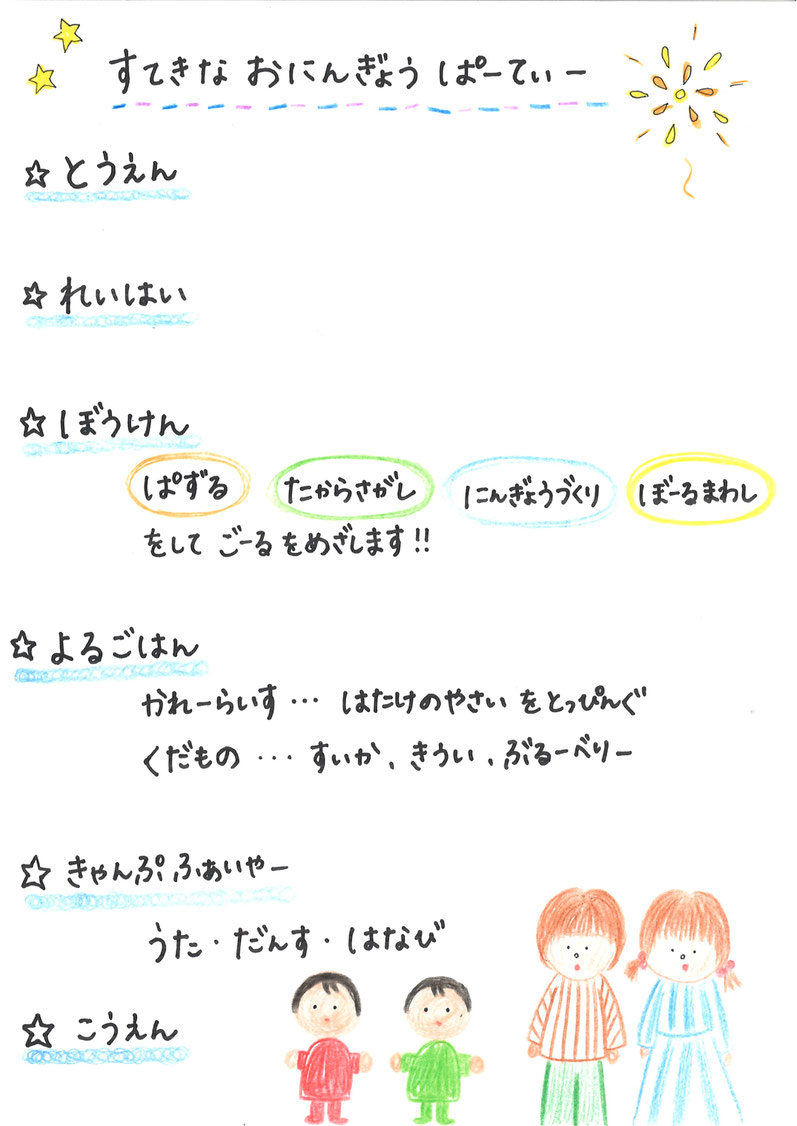 すてきな おにんぎょう ぱーてぃー
☆ とうえん
☆ れいはい
☆ しぼうけん
ぱずる たからさがし にんぎょうづくり ぼーるまわし
をして ごーるをめざします!!
☆ よるごはん
かれーらいす… はたけのやさいをとっぴんぐ
くだもの … すいか、きうい、ぶるーべりー
☆ きゃんぷふぁいやー
うた・だんす・はなび
☆ こうえん